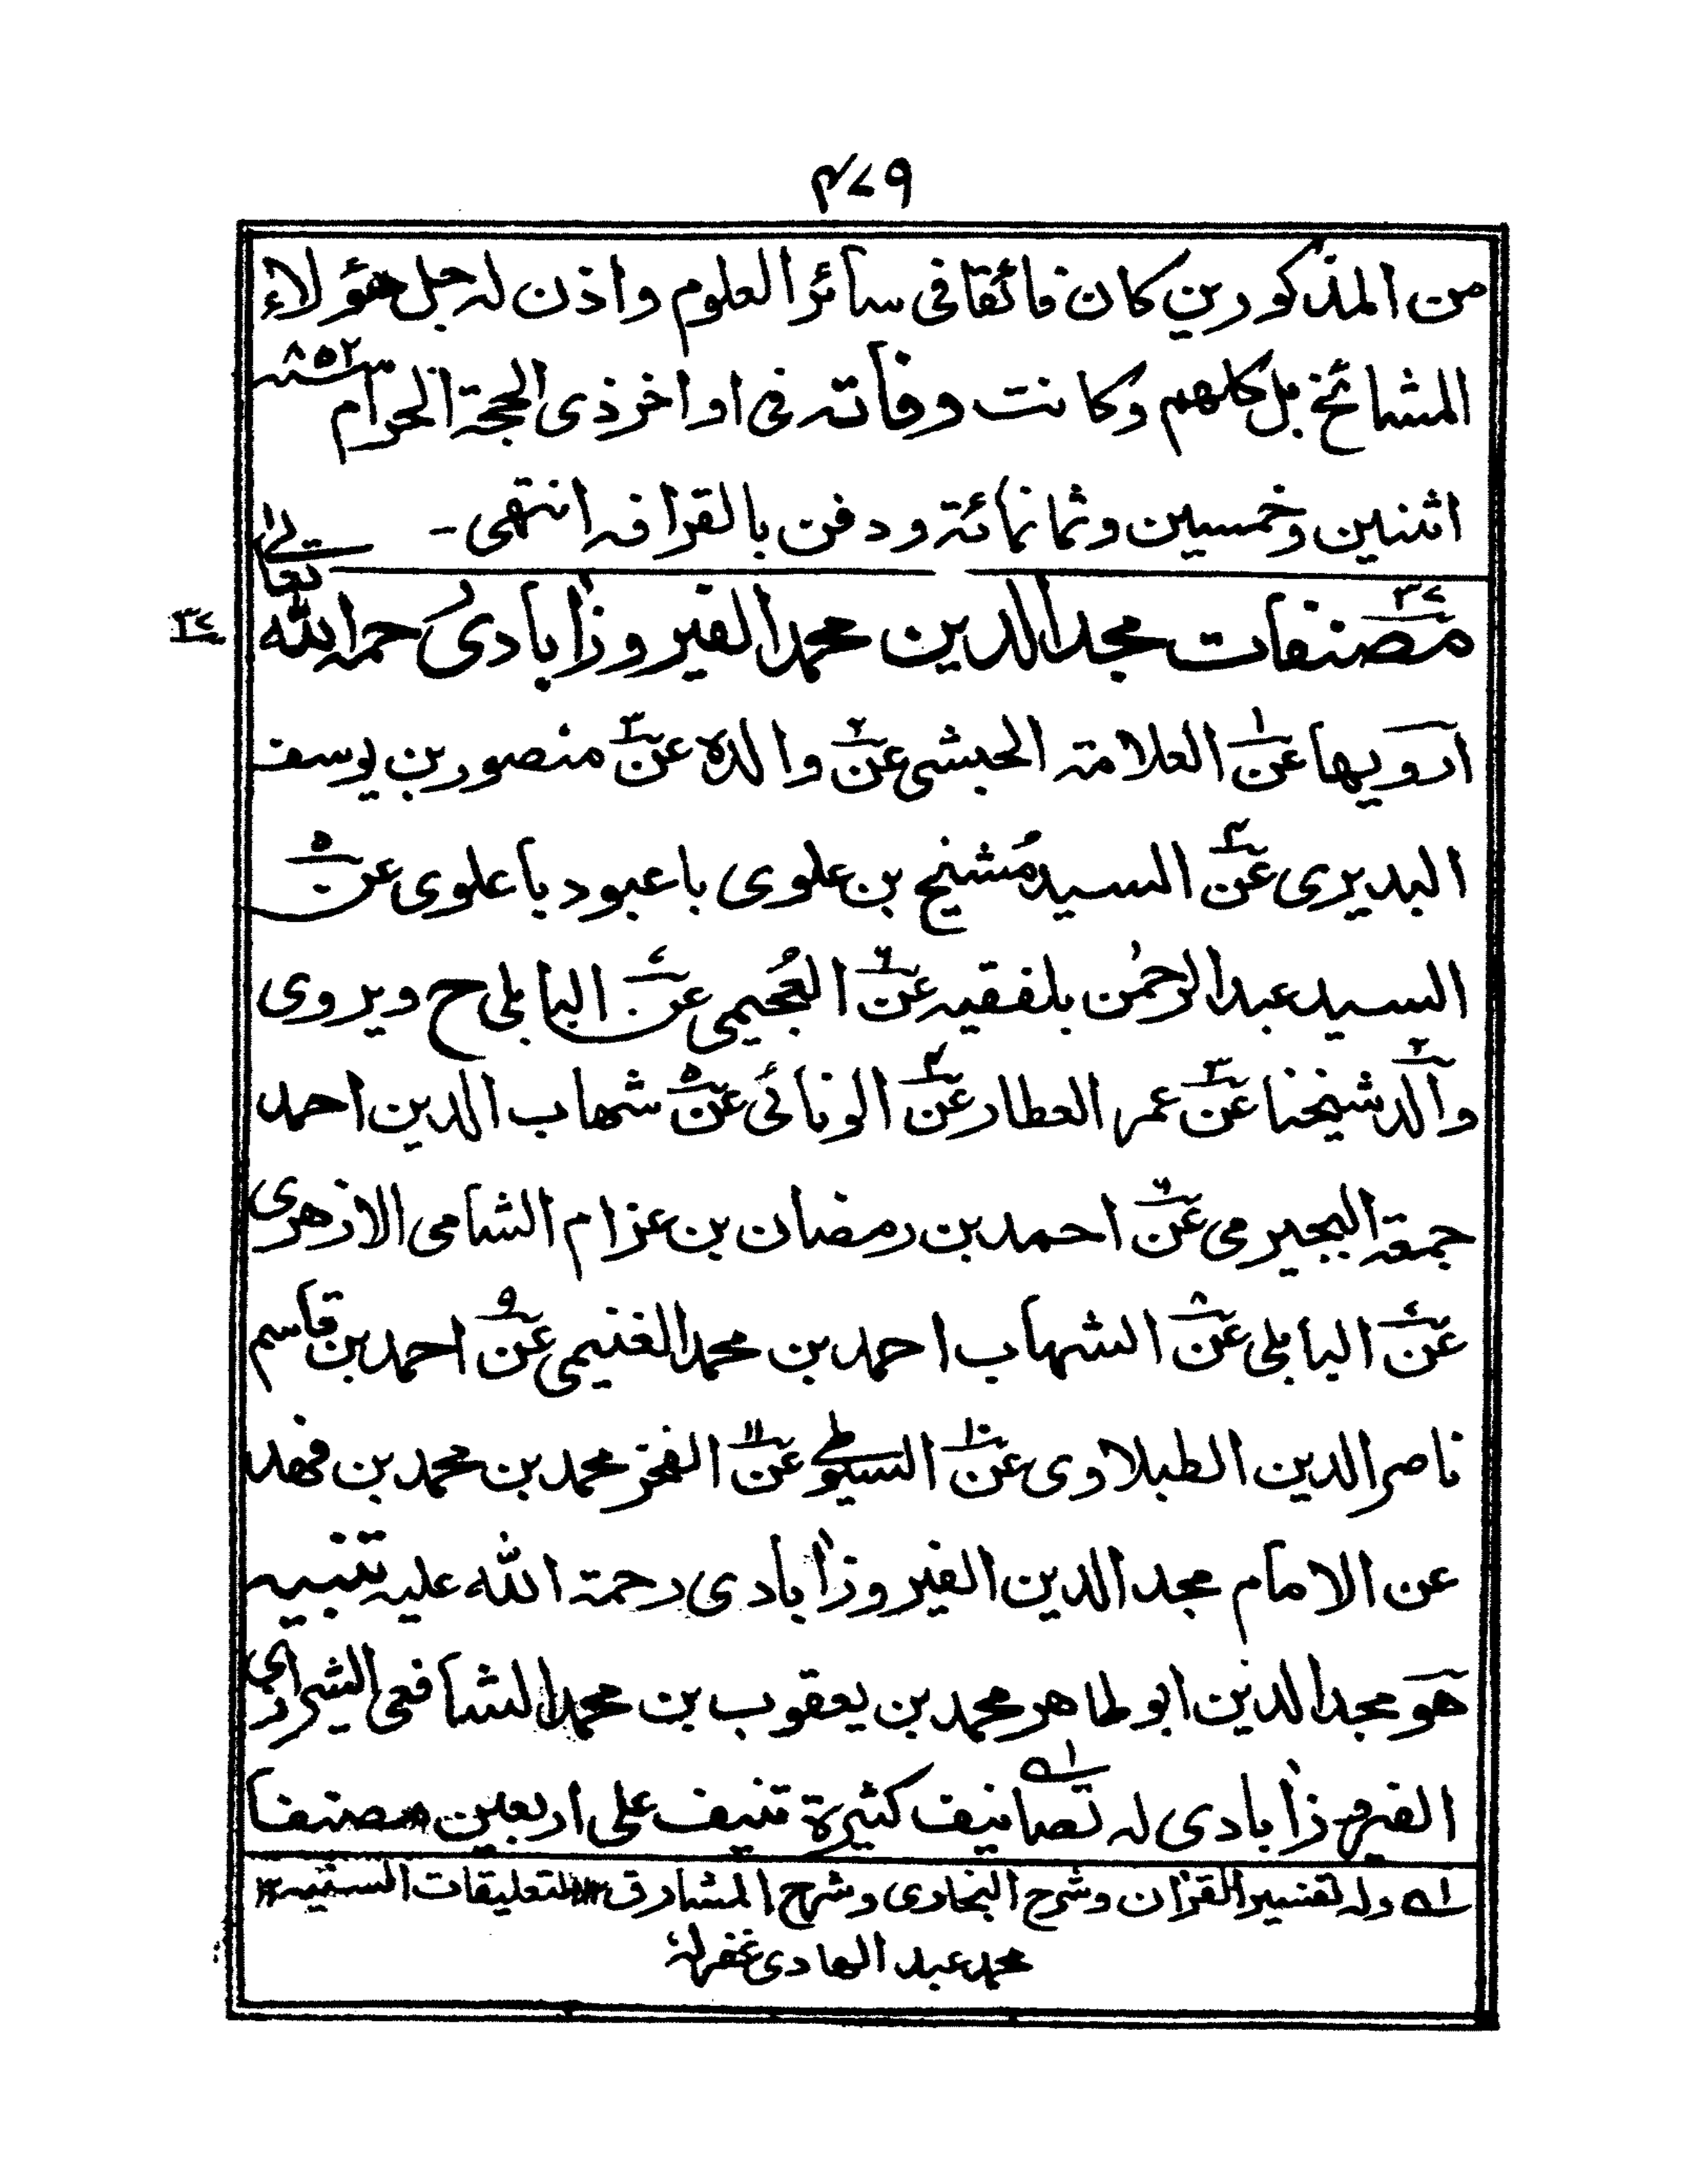 ۴۷۹
من المذكورين كان فائقا في سائر العلوم واذن له جل هؤلاء
المشائخ بل كلهم وكانت وفاته في اواخر ذي الحجة الحرام سنة ۸۵۲
اثنين وخمسين وثمانمائة ودفن بالقرافه انتهى ـ
مصنفات مجد الدين محمد الفيروزآبادي رحمه الله تعالى
ارويها عن۱ العلامة الحبشي عن۲ والده عن۳ منصور بن يوسف
البديري عن۴ السيد مُشيخ بن علوي باعبود باعلوي عن۵
السيد عبد الرحمٰن بلفقيه عن۶ العُجيمي عن۷ البابلي ح ويروي
والد۲ شيخنا عن۳ عمر العطار عن۴ الونائي عن۵ شهاب الدين احمد
جمعة البجيرمي عن۶ احمد بن رمضان بن عزام الشامي الازهري
عن۷ البابلي عن۸ الشهاب احمد بن محمد الغنيمي عن۹ احمد بن قاسم
ناصر الدين الطبلاوي عن۱۰ السيوطي عن۱۱ الفخر محمد بن محمد بن فهد
عن الامام مجد الدين الفيروزآبادي رحمة الله عليه تنبيه
هو مجد الدين ابو طاهر محمد بن يعقوب بن محمد الشافعي الشيرازي
الفيروزآبادي له تصانيف۱ كثيرة تنيف على اربعين مصنفا
۱ه وله تفسير القرآن وشرح البخاري وشرح المشارق ۱۲ التعليقات السنيه ۱۲
محمد عبد الهادي غفرله